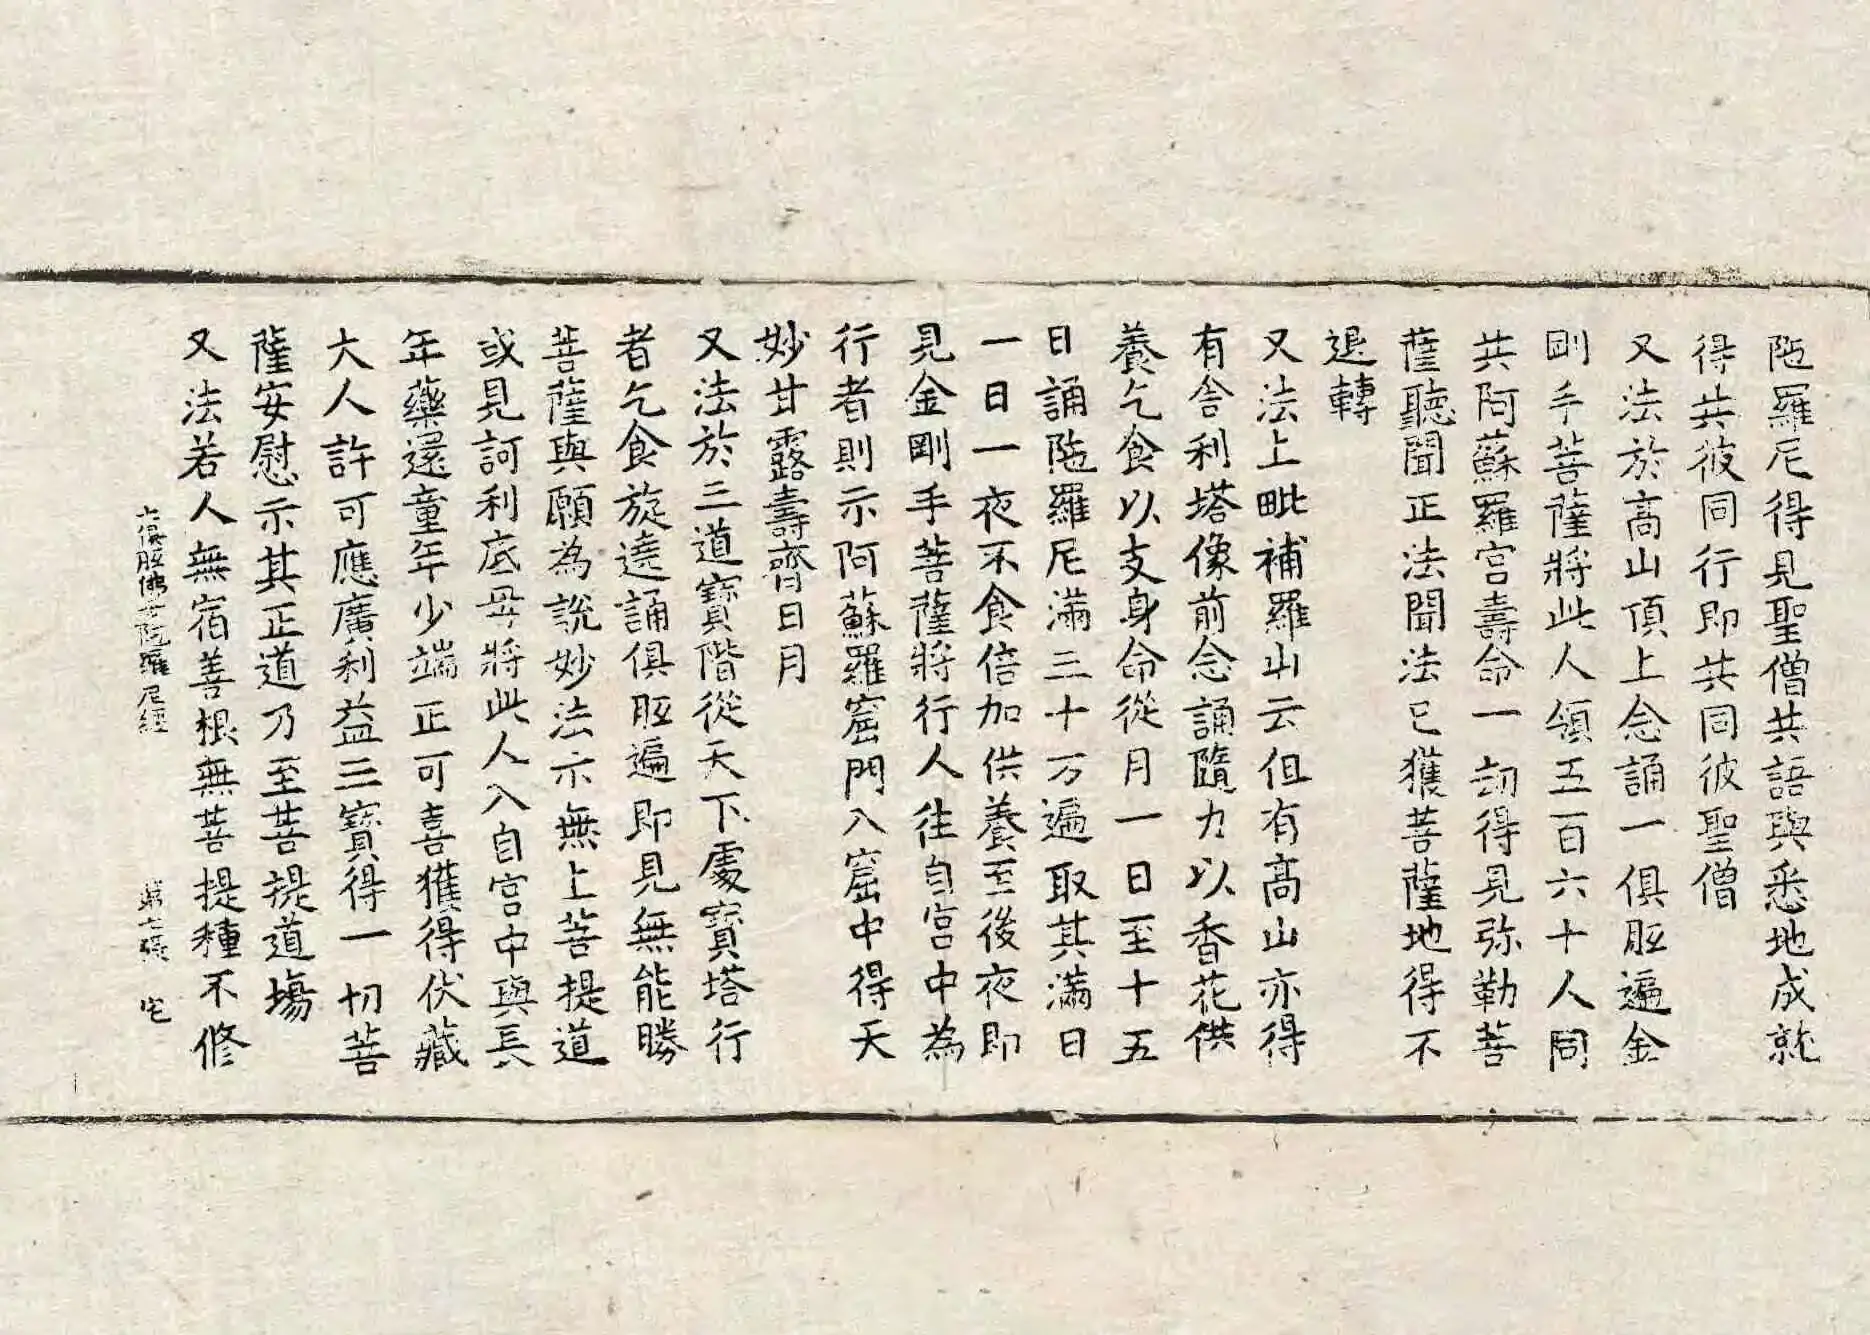 陁羅尼得見聖僧共語與悉地成就
得共彼同行即共同彼聖僧
又法於髙山頂上念誦一俱胝遍金
剛手菩薩將此人領五百六十人同
共阿蘇羅宫壽命一劫得見弥勒菩
薩聽聞正法聞法已獲菩薩地得不
退轉
又法上毗補羅山云但有髙山亦得
有舍利塔像前念誦隨力以香花供
養乞食以支身命從月一日至十五
日誦陁羅尼滿三十万遍取其滿日
一日一夜不食倍加供養至後夜即
見金剛手菩薩將行人往自宫中為
行者則示阿蘇羅窟門入窟中得天
妙甘露壽齊日月
又法於三道寶階從天下處寶塔行
者乞食旋遶誦俱胝遍即見無能勝
菩薩與願為説妙法示無上菩提道
或見訶利底母將此人入自宫中與長
年藥還童年少端正可喜獲得伏藏
大人許可應廣利益三寶得一切菩
薩安慰示其正道乃至菩提道場
又法若人無宿善根無菩提種不修
六俱胝佛母陁羅尼經 第七張 宅